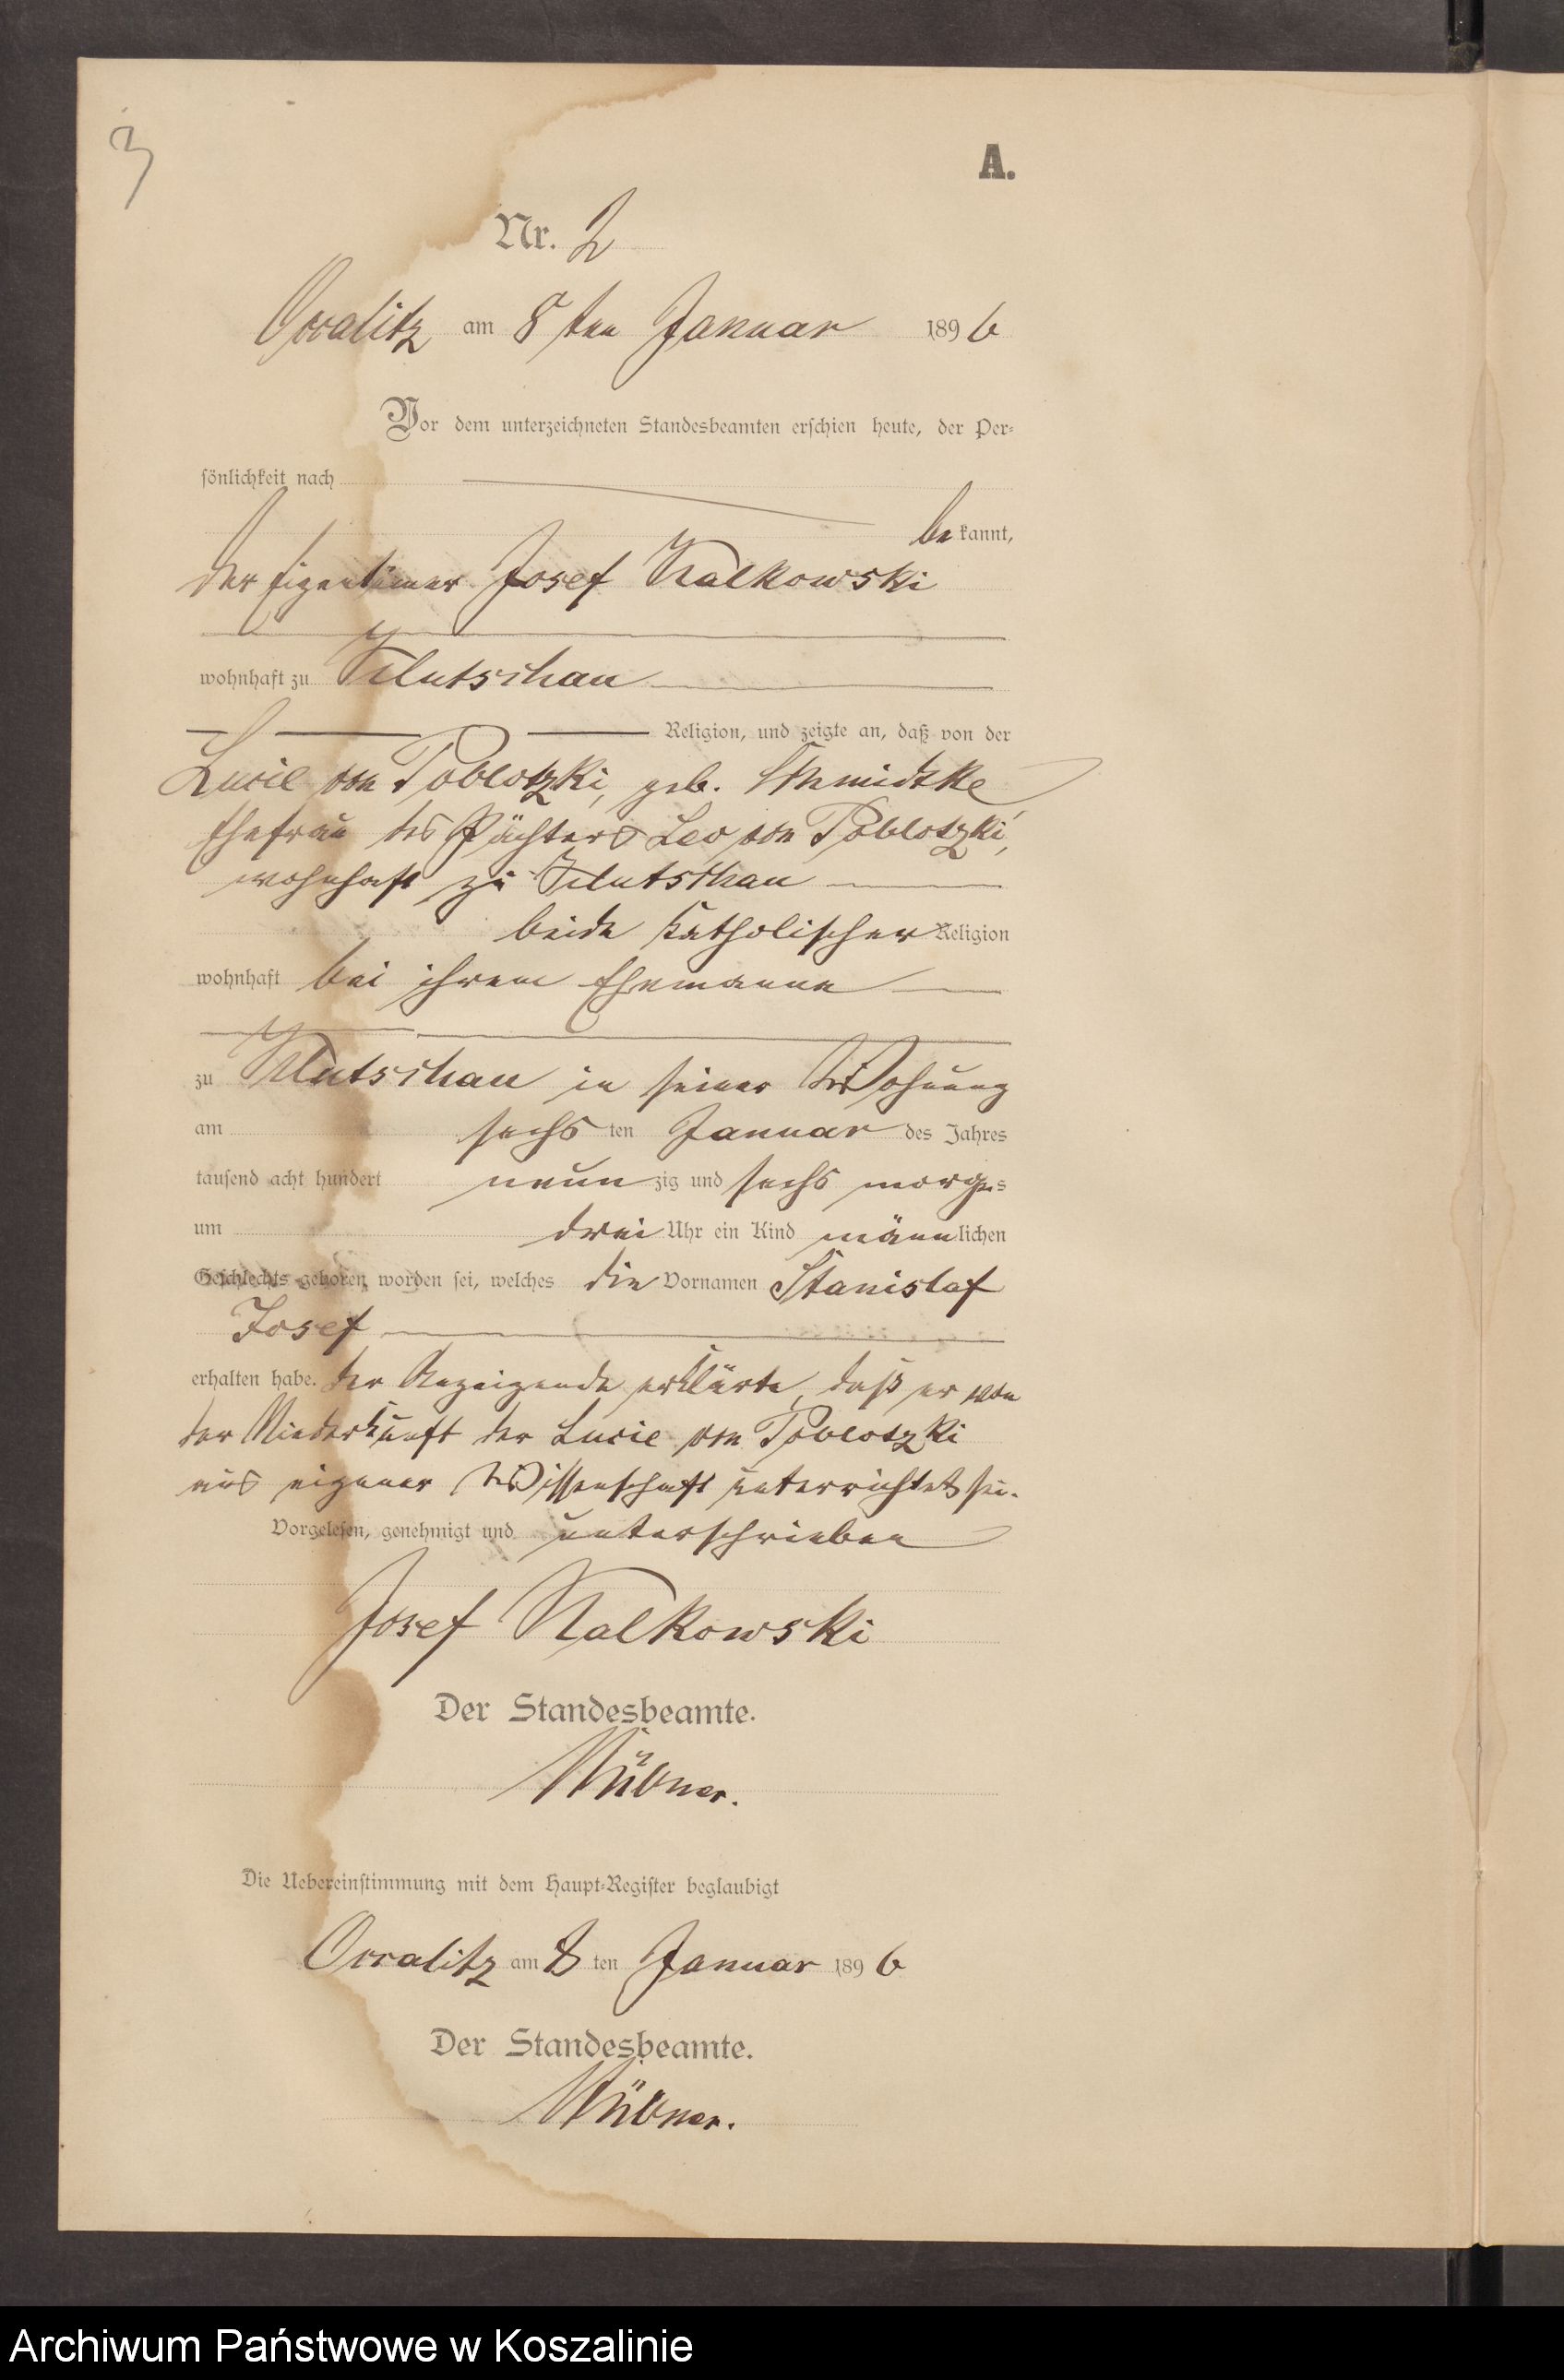 3
A.
Nr. 2
Occalitz am 8ten Januar 1896
Vor dem unterzeichneten Standesbeamten erschien heute, der Per-
sönlichkeit nach
bekannt,
der Eigentümer Josef Kalkowski
wohnhaft zu Klutschau
Religion, und zeigte an, daß von der
Lucie von Poblotzki, geb. Schmidtke
Ehefrau des Pächters Leo von Poblotzki,
wohnhaft zu Klutschau
beide katholischer Religion
wohnhaft bei ihrem Ehemanne
zu Klutschau in seiner Wohnung
am sechsten Januar des Jahres
tausend acht hundert neunzig und sechs morgens
um drei Uhr ein Kind männlichen
Geschlechts geboren worden sei, welches die Vornamen Stanislaf
Josef
erhalten habe. Der Anzeigende erklärte, daß er von
der Niederkunft der Lucie von Poblotzki
aus eigener Wissenschaft unterrichtet sei.
Vorgelesen, genehmigt und unterschrieben
Josef Kalkowski
Der Standesbeamte.
Die Uebereinstimmung mit dem Haupt-Register beglaubigt
Occalitz am 8ten Januar 1896
Der Standesbeamte.
Archiwum Państwowe w Koszalinie